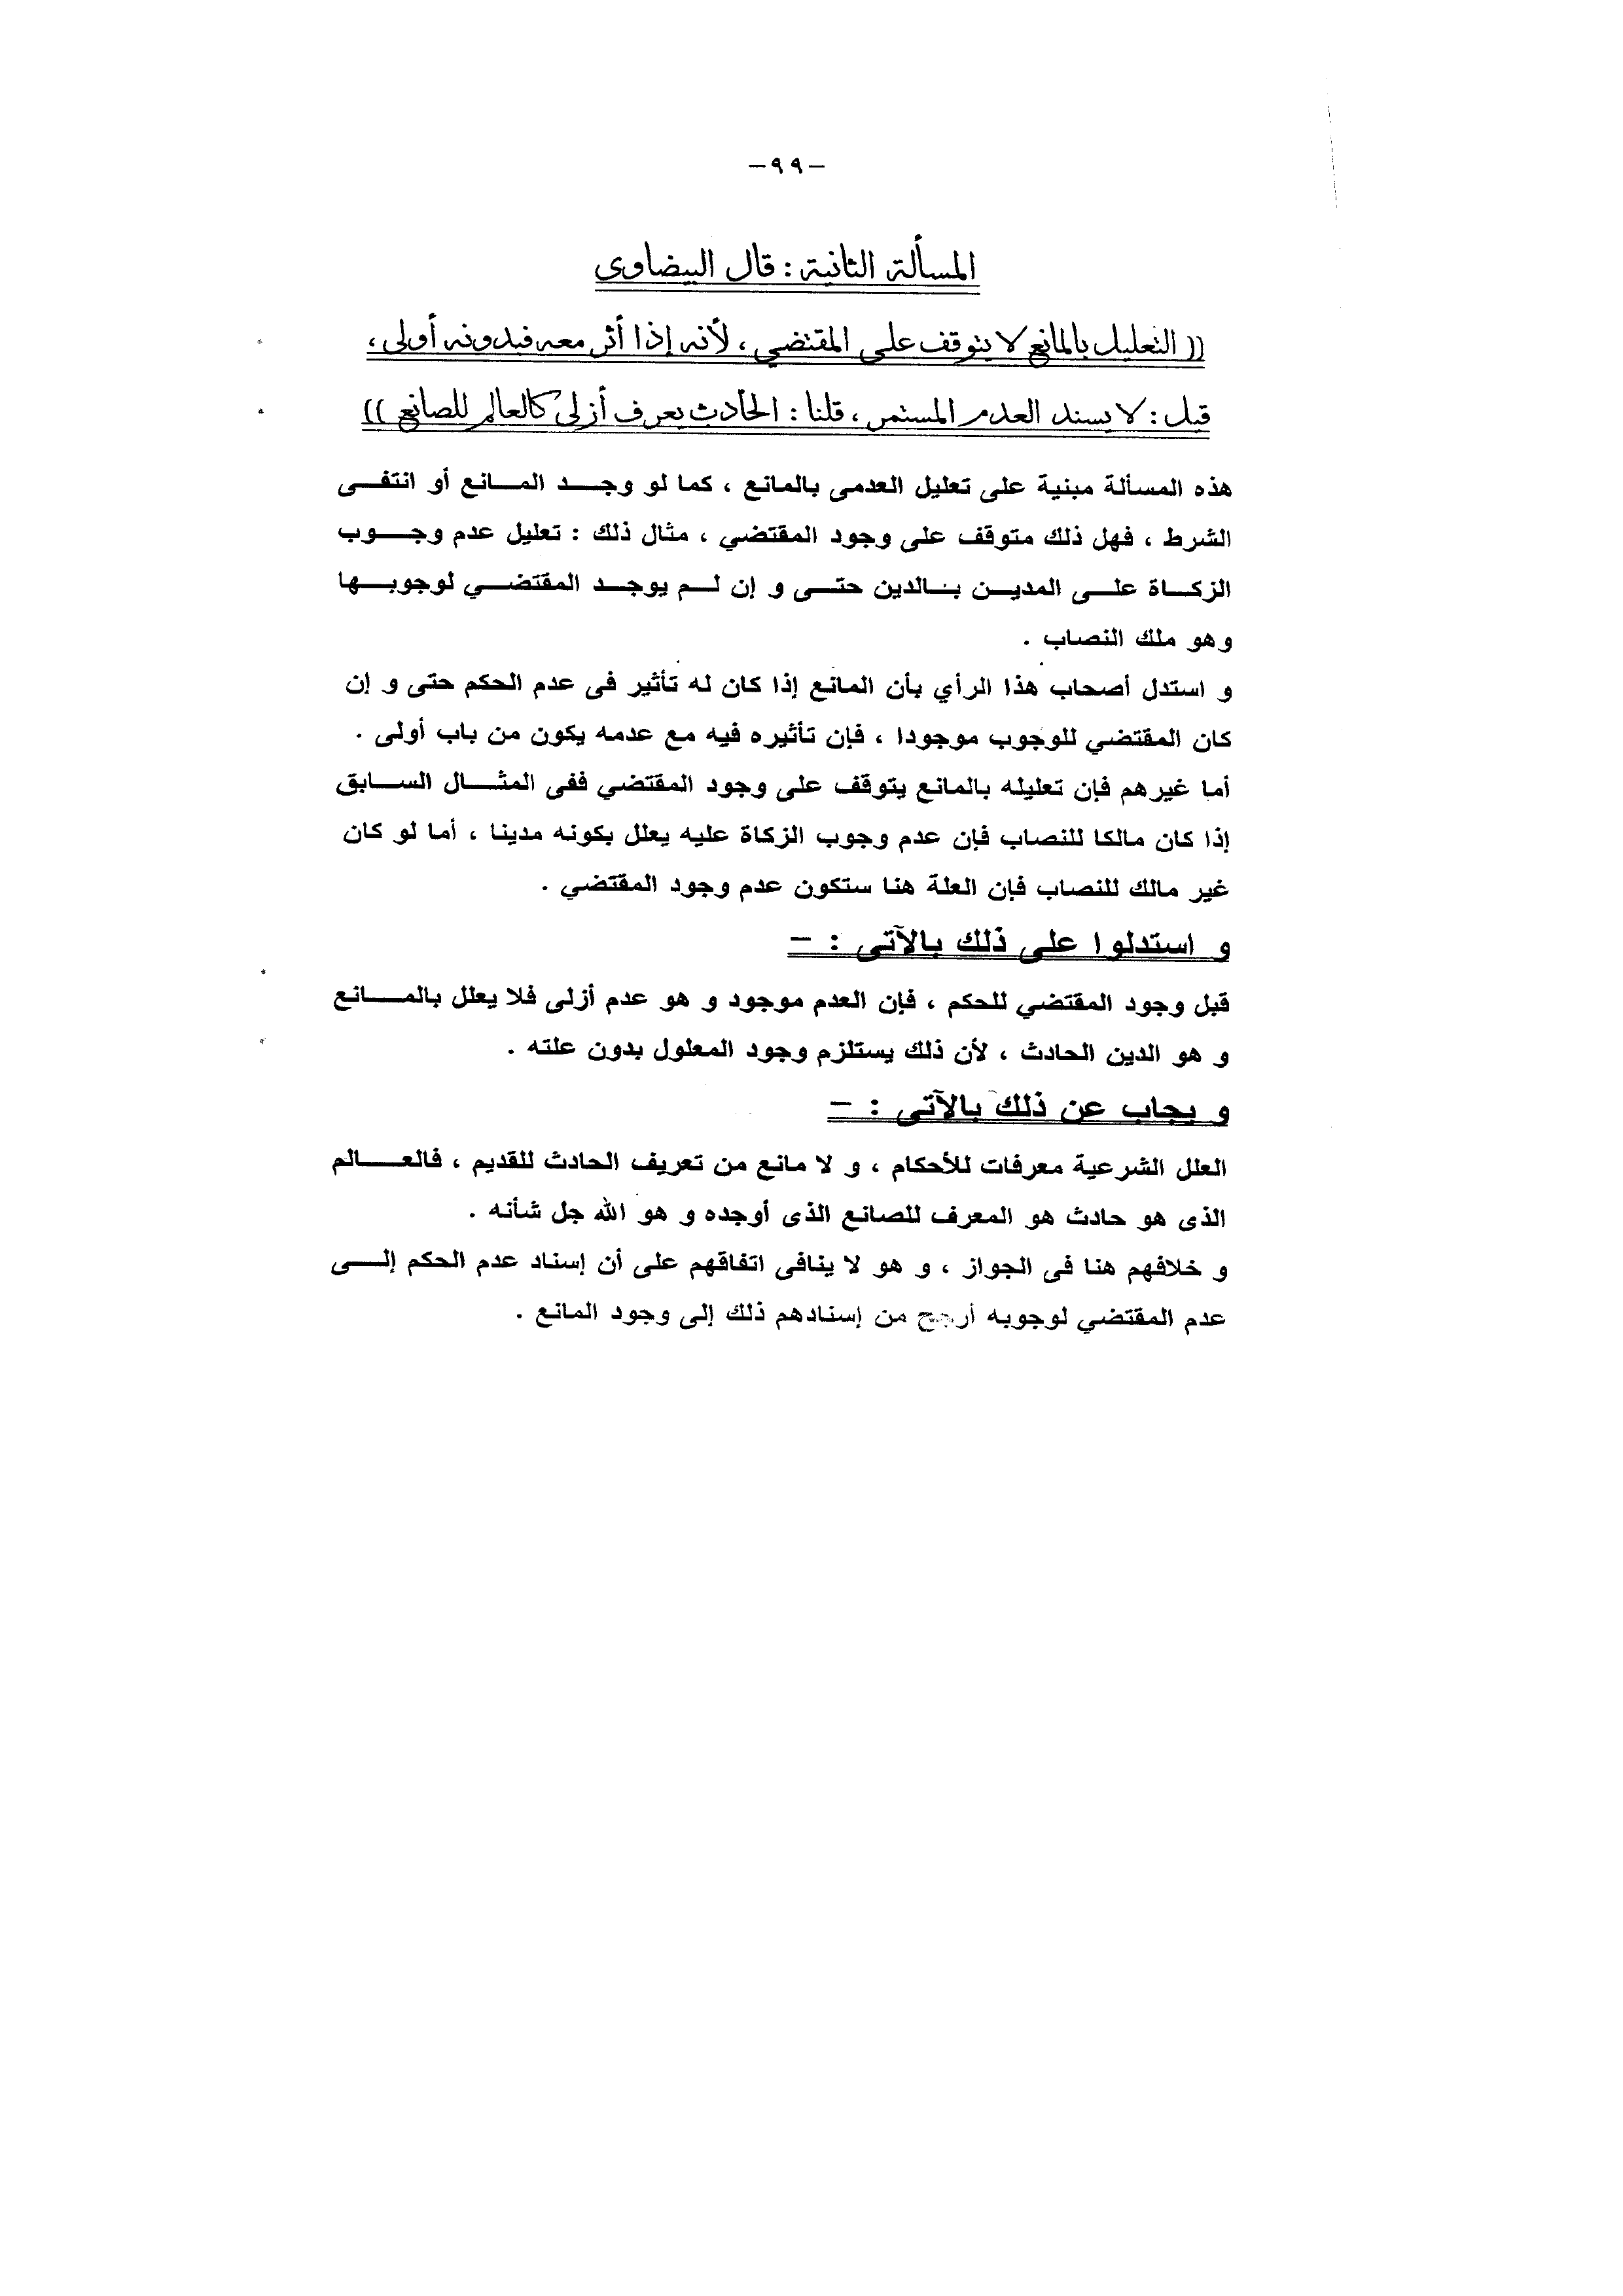 -٩٩-
المسألة الثانية : قال البيضاوى
(( التعليل بالمانع لا يتوقف على المقتضي ، لأنه إذا أثر معه فبدونه أولى ،
قيل : لا يسند العدم المستمر ، قلنا : الحادث يعرف أزلى كالعالم للصانع ))
هذه المسألة مبنية على تعليل العدمى بالمانع ، كما لو وجد المانع أو انتفى
الشرط ، فهل ذلك متوقف على وجود المقتضي ، مثال ذلك : تعليل عدم وجوب
الزكاة على المدين بالدين حتى و إن لم يوجد المقتضي لوجوبها
وهو ملك النصاب .
و استدل أصحاب هذا الرأي بأن المانع إذا كان له تأثير فى عدم الحكم حتى و إن
كان المقتضي للوجوب موجودا ، فإن تأثيره فيه مع عدمه يكون من باب أولى .
أما غيرهم فإن تعليله بالمانع يتوقف على وجود المقتضي ففى المثال السابق
إذا كان مالكا للنصاب فإن عدم وجوب الزكاة عليه يعلل بكونه مدينا ، أما لو كان
غير مالك للنصاب فإن العلة هنا ستكون عدم وجود المقتضي .
و استدلوا على ذلك بالآتى : -
قبل وجود المقتضي للحكم ، فإن العدم موجود و هو عدم أزلى فلا يعلل بالمانع
و هو الدين الحادث ، لأن ذلك يستلزم وجود المعلول بدون علته .
و يجاب عن ذلك بالآتى : -
العلل الشرعية معرفات للأحكام ، و لا مانع من تعريف الحادث للقديم ، فالعالم
الذى هو حادث هو المعرف للصانع الذى أوجده و هو الله جل شأنه .
و خلافهم هنا فى الجواز ، و هو لا ينافى اتفاقهم على أن إسناد عدم الحكم إلى
عدم المقتضي لوجوبه أرجح من إسنادهم ذلك إلى وجود المانع .